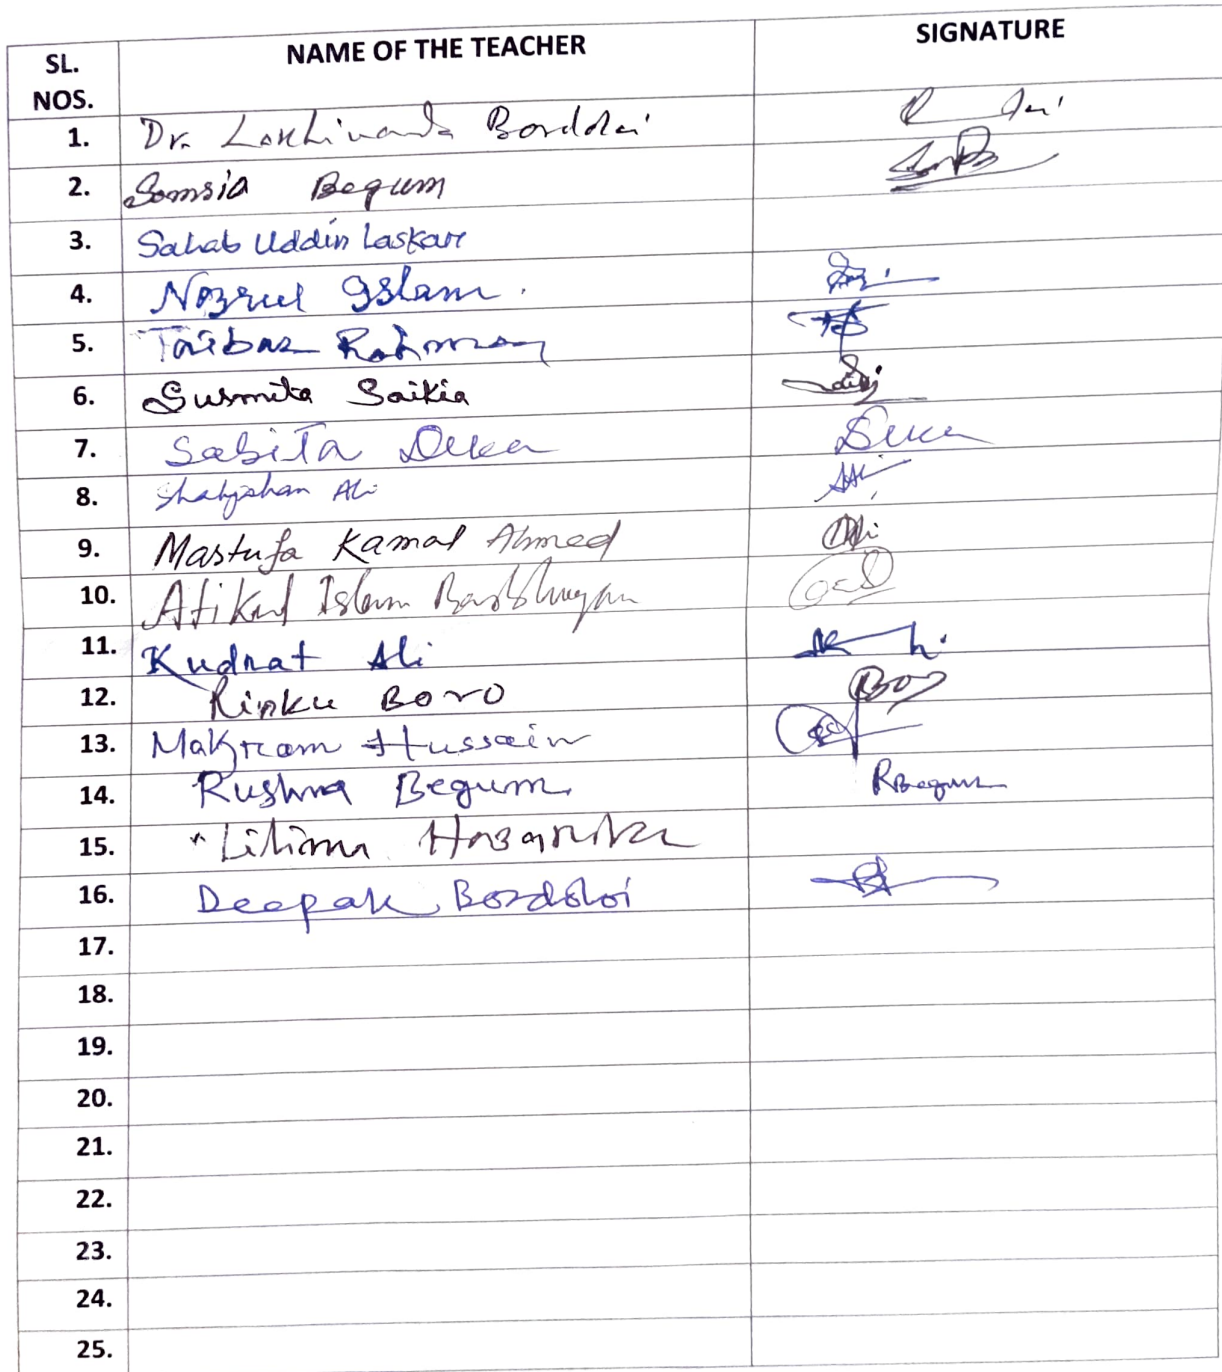 SL. NOS. NAME OF THE TEACHER SIGNATURE
1. Dr. Lakhinanda Bordoloi
2. Somsia Begum
3. Sahab Uddin Laskar
4. Nozrul Islam.
5. Taibar Rahman
6. Susmita Saikia
7. Sabita Deka Deka
8. Shahjahan Ali
9. Mastufa Kamal Ahmed
10. Atikul Islam Barbhuyan
11. Kudrat Ali
12. Rinku Boro
13. Makram Hussain
14. Rushna Begum. RBegum
15. Lilima Hazarika
16. Deepak Bordoloi
17.
18.
19.
20.
21.
22.
23.
24.
25.